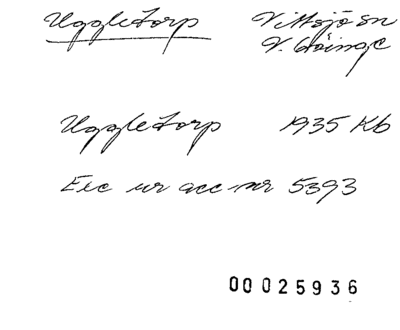 Uggletorp Vittsjö sn
V. Göinge
Uggletorp 1935 Kb
Exc ur acc nr 5393
00025936